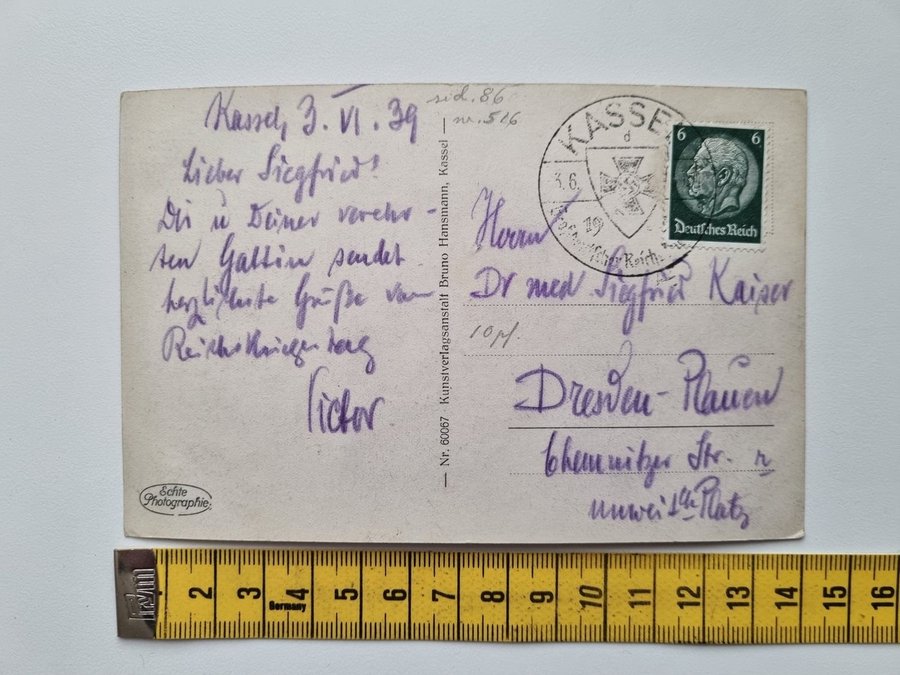 Kassel, 3. VI. 39
Lieber Siegfried!
Dir u Deiner verehr-
ten Gattin sendet
herzlichste Grüße vom
Reichskriegertag
Victor
Echte
Photographie
sid. 86
nr. 516
— Nr. 60067 Kunstverlagsanstalt Bruno Hansmann, Kassel —
KASSEL
d
3.6.
19
Großdeutscher Reichs
6 6
Deutsches Reich
Herrn
Dr med Siegfried Kaiser
10 pf.
Dresden-Plauen
Chemnitzer Str.
unweit Platz
fym
Germany
2 3 4 5 6 7 8 9 10 11 12 13 14 15 16